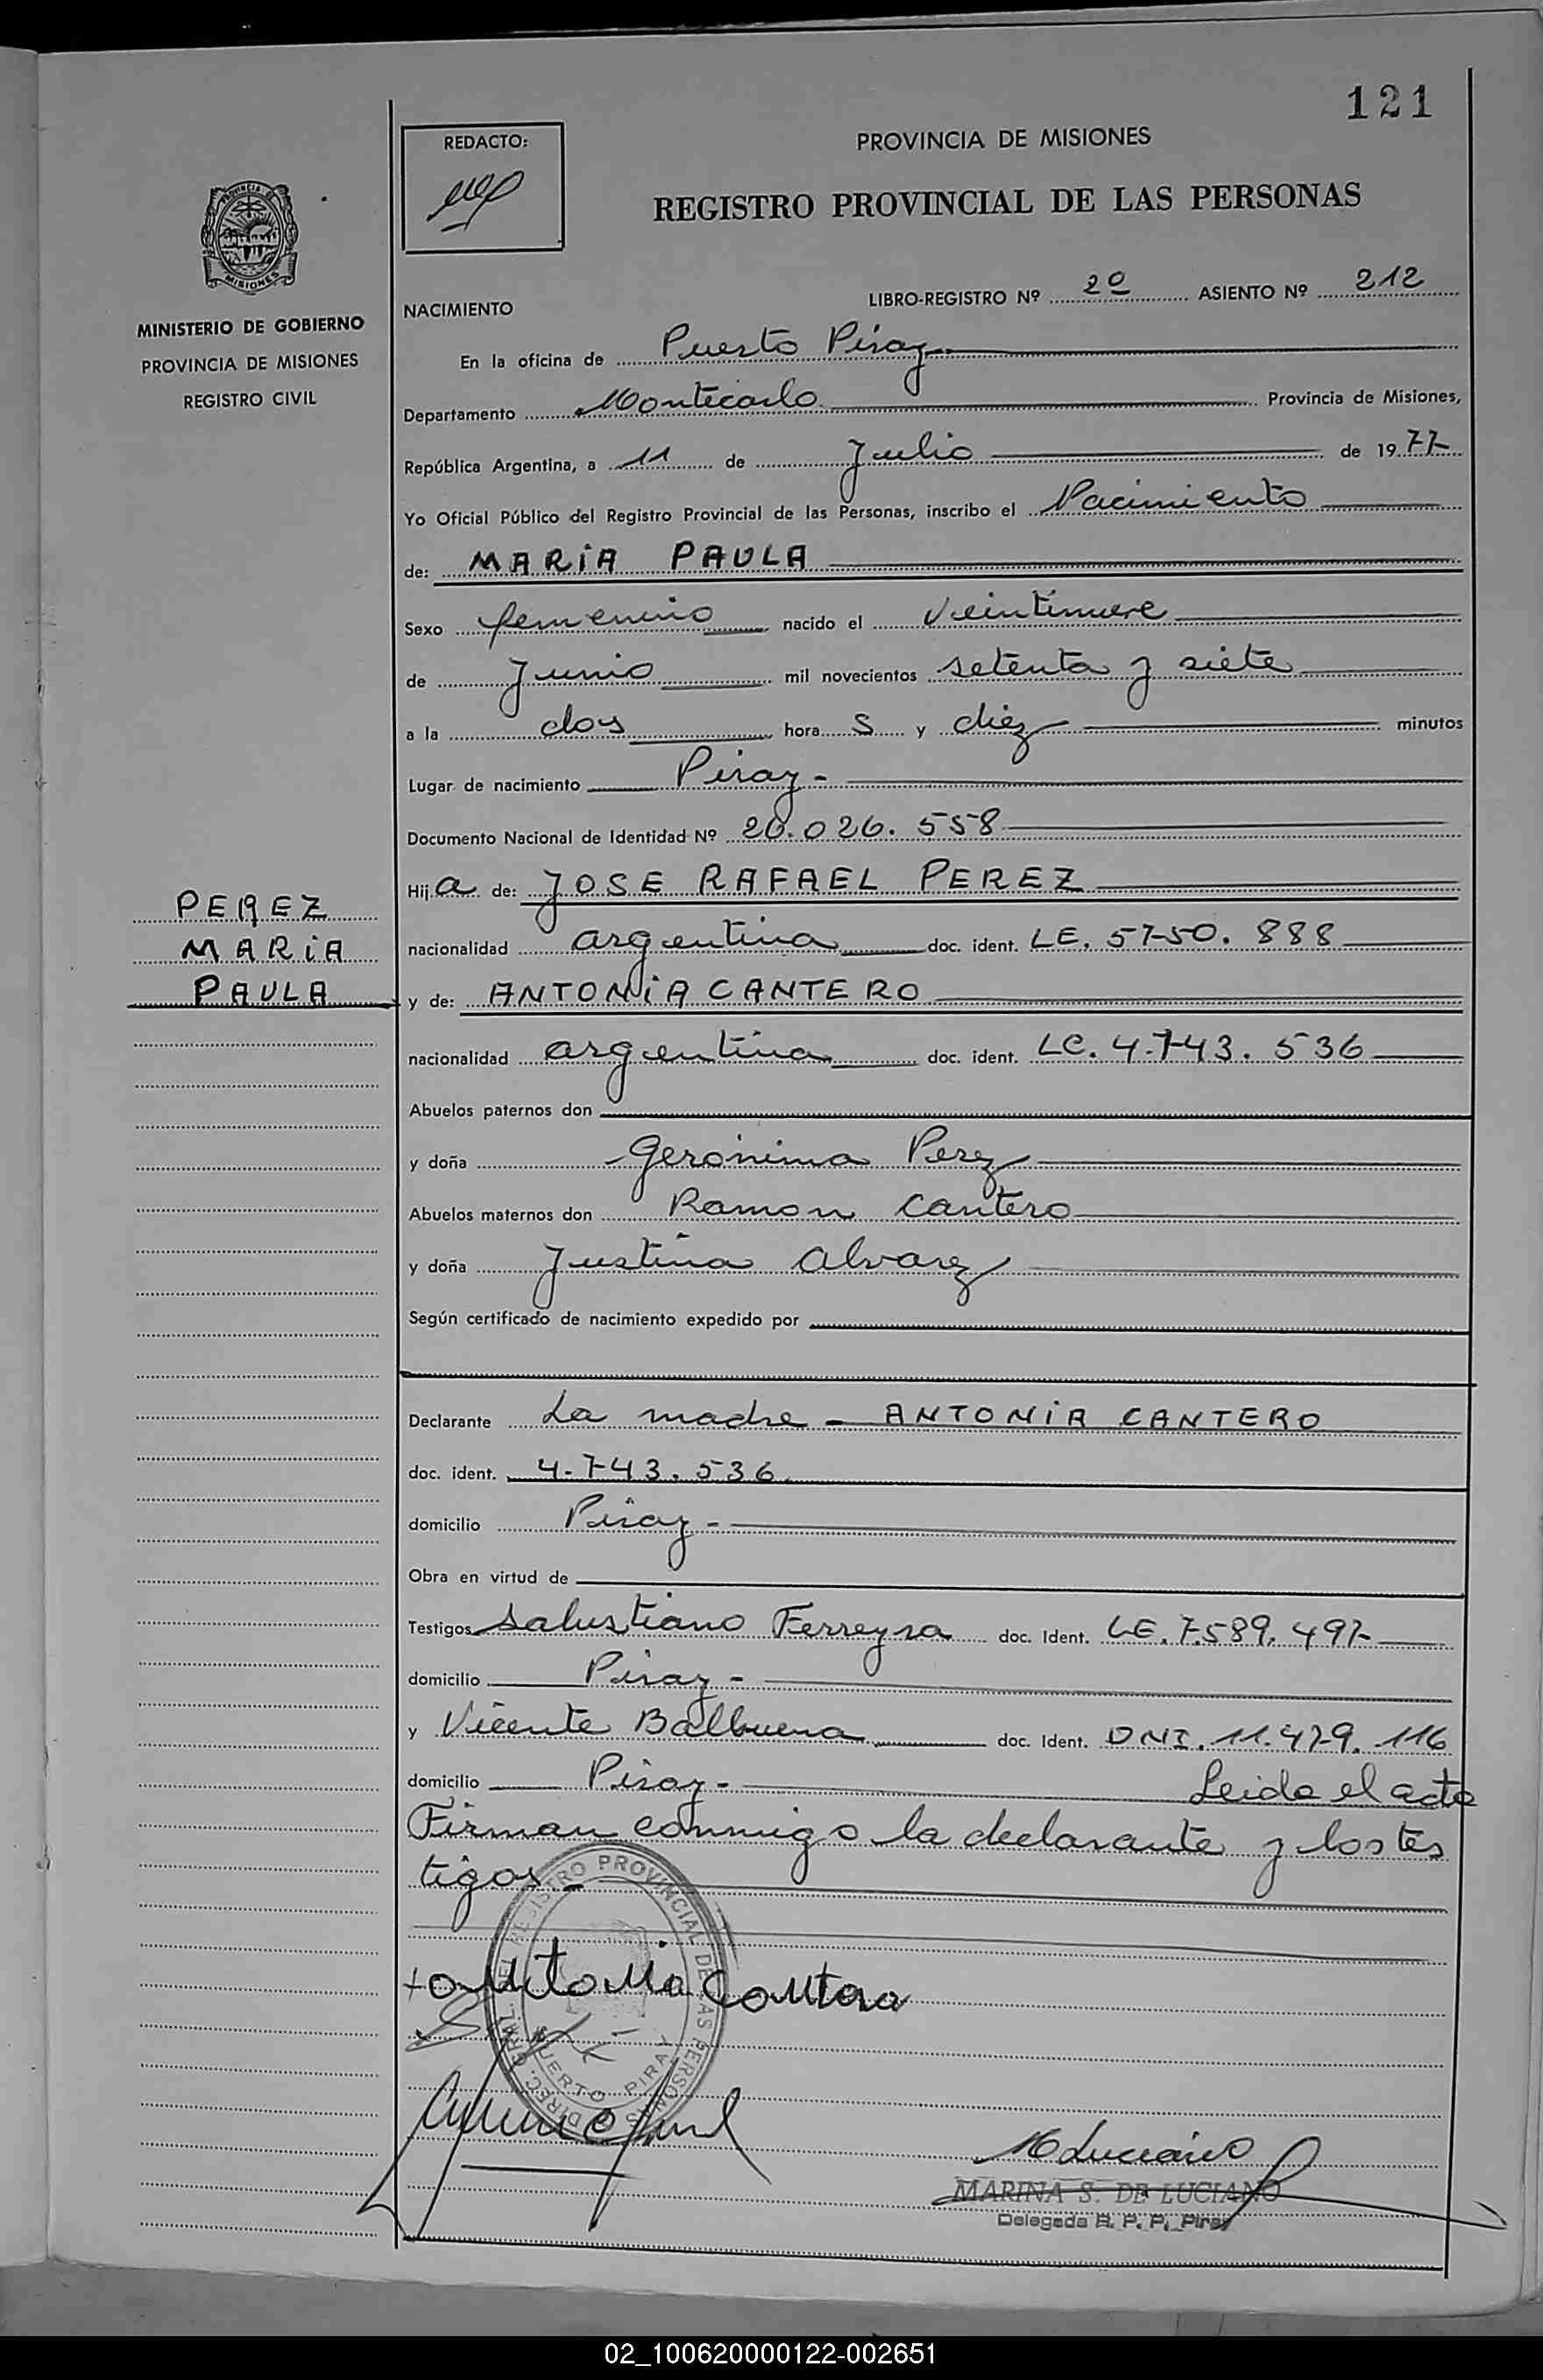 121
REDACTO:
PROVINCIA DE MISIONES
REGISTRO PROVINCIAL DE LAS PERSONAS
PROVINCIA DE
MISIONES
MINISTERIO DE GOBIERNO
PROVINCIA DE MISIONES
REGISTRO CIVIL
NACIMIENTO
LIBRO-REGISTRO Nº 2º ASIENTO Nº 212
En la oficina de Puerto Piray
Departamento Montecarlo Provincia de Misiones,
República Argentina, a 11 de Julio de 1977
Yo Oficial Público del Registro Provincial de las Personas, inscribo el Nacimiento
de: MARIA PAULA
Sexo femenino nacido el veintinueve
de Junio mil novecientos setenta y siete
a la dos hora s y diez minutos
Lugar de nacimiento Piray-
Documento Nacional de Identidad Nº 26.026.558
Hij a de: JOSE RAFAEL PEREZ
nacionalidad argentina doc. ident. LE. 5750.888
PEREZ
MARIA
PAULA
y de: ANTONIA CANTERO
nacionalidad argentina doc. ident. LC. 4.743.536
Abuelos paternos don
y doña Gerónima Perez
Abuelos maternos don Ramon Cantero
y doña Justina Alvarez
Según certificado de nacimiento expedido por
Declarante La madre - ANTONIA CANTERO
doc. ident. 4.743.536
domicilio Piray-
Obra en virtud de
Testigos Salustiano Ferreyra doc. Ident. LE. 7.589.497
domicilio Piray-
y Vicente Balbuena doc. Ident. DNI. 11.479.116
domicilio Piray- Leida el acta
Firman conmigo la declarante y los tes
tigos-
REGISTRO PROVINCIAL DE LAS PERSONAS
PUERTO PIRAY
Antonia Contero
MLuciano
MARINA S. DE LUCIANO
Delegada R. P. P. Piray
02_100620000122-002651